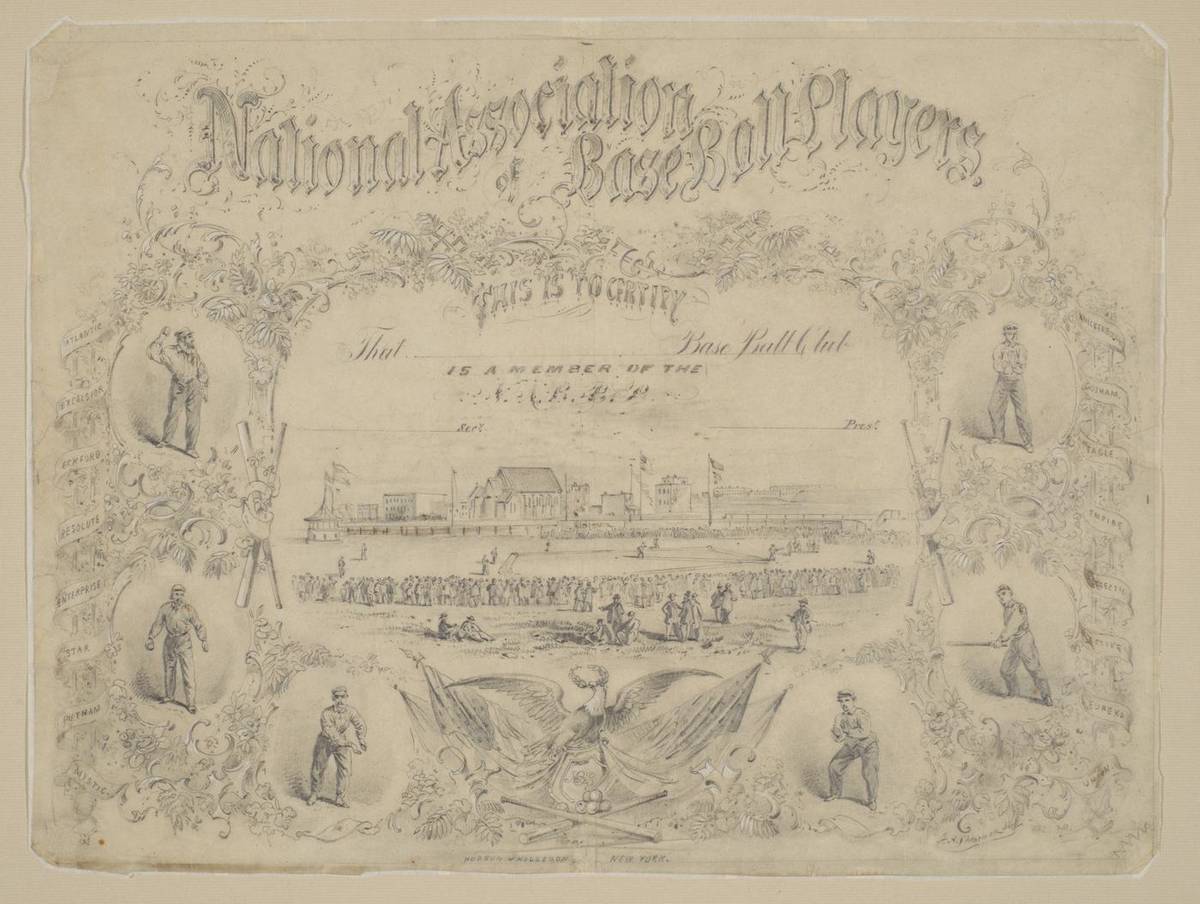 National Association
of Base Ball Players.
THIS IS TO CERTIFY
That Base Ball Club
IS A MEMBER OF THE
N. A. B. B. P.
Secy. Prest.
ATLANTIC
EXCELSIOR
ECKFORD
RESOLUTE
ENTERPRISE
STAR
PUTNAM
MYSTIC
KNICKERBOCKER
GOTHAM
EAGLE
EMPIRE
EUREKA
NEW YORK.